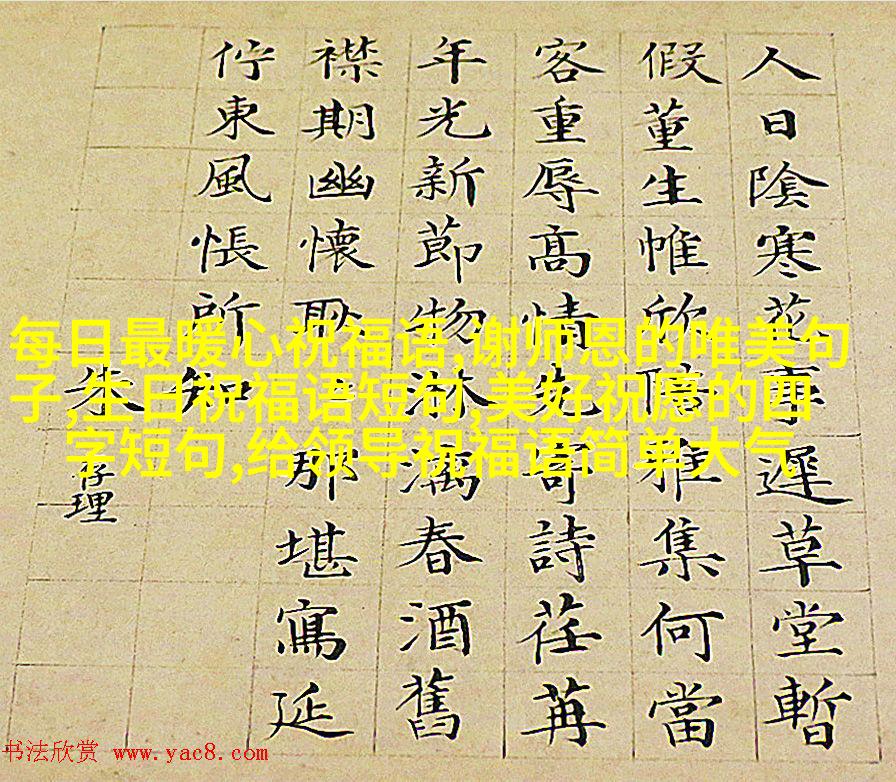 人日陰寒花事遲草堂暫
假董生帷欣陪雅集何當
客重辱高情先寄詩荏苒
年光新節物淋漓春酒舊
襟期幽懷耿々那堪寫延
佇東風悵所知
朱存理
每日最暖心祝福语,谢师恩的唯美句
子,生日祝福语短句,美好祝愿的四
字短句,给领导祝福语简单大气
书法欣赏 www.yac8.com